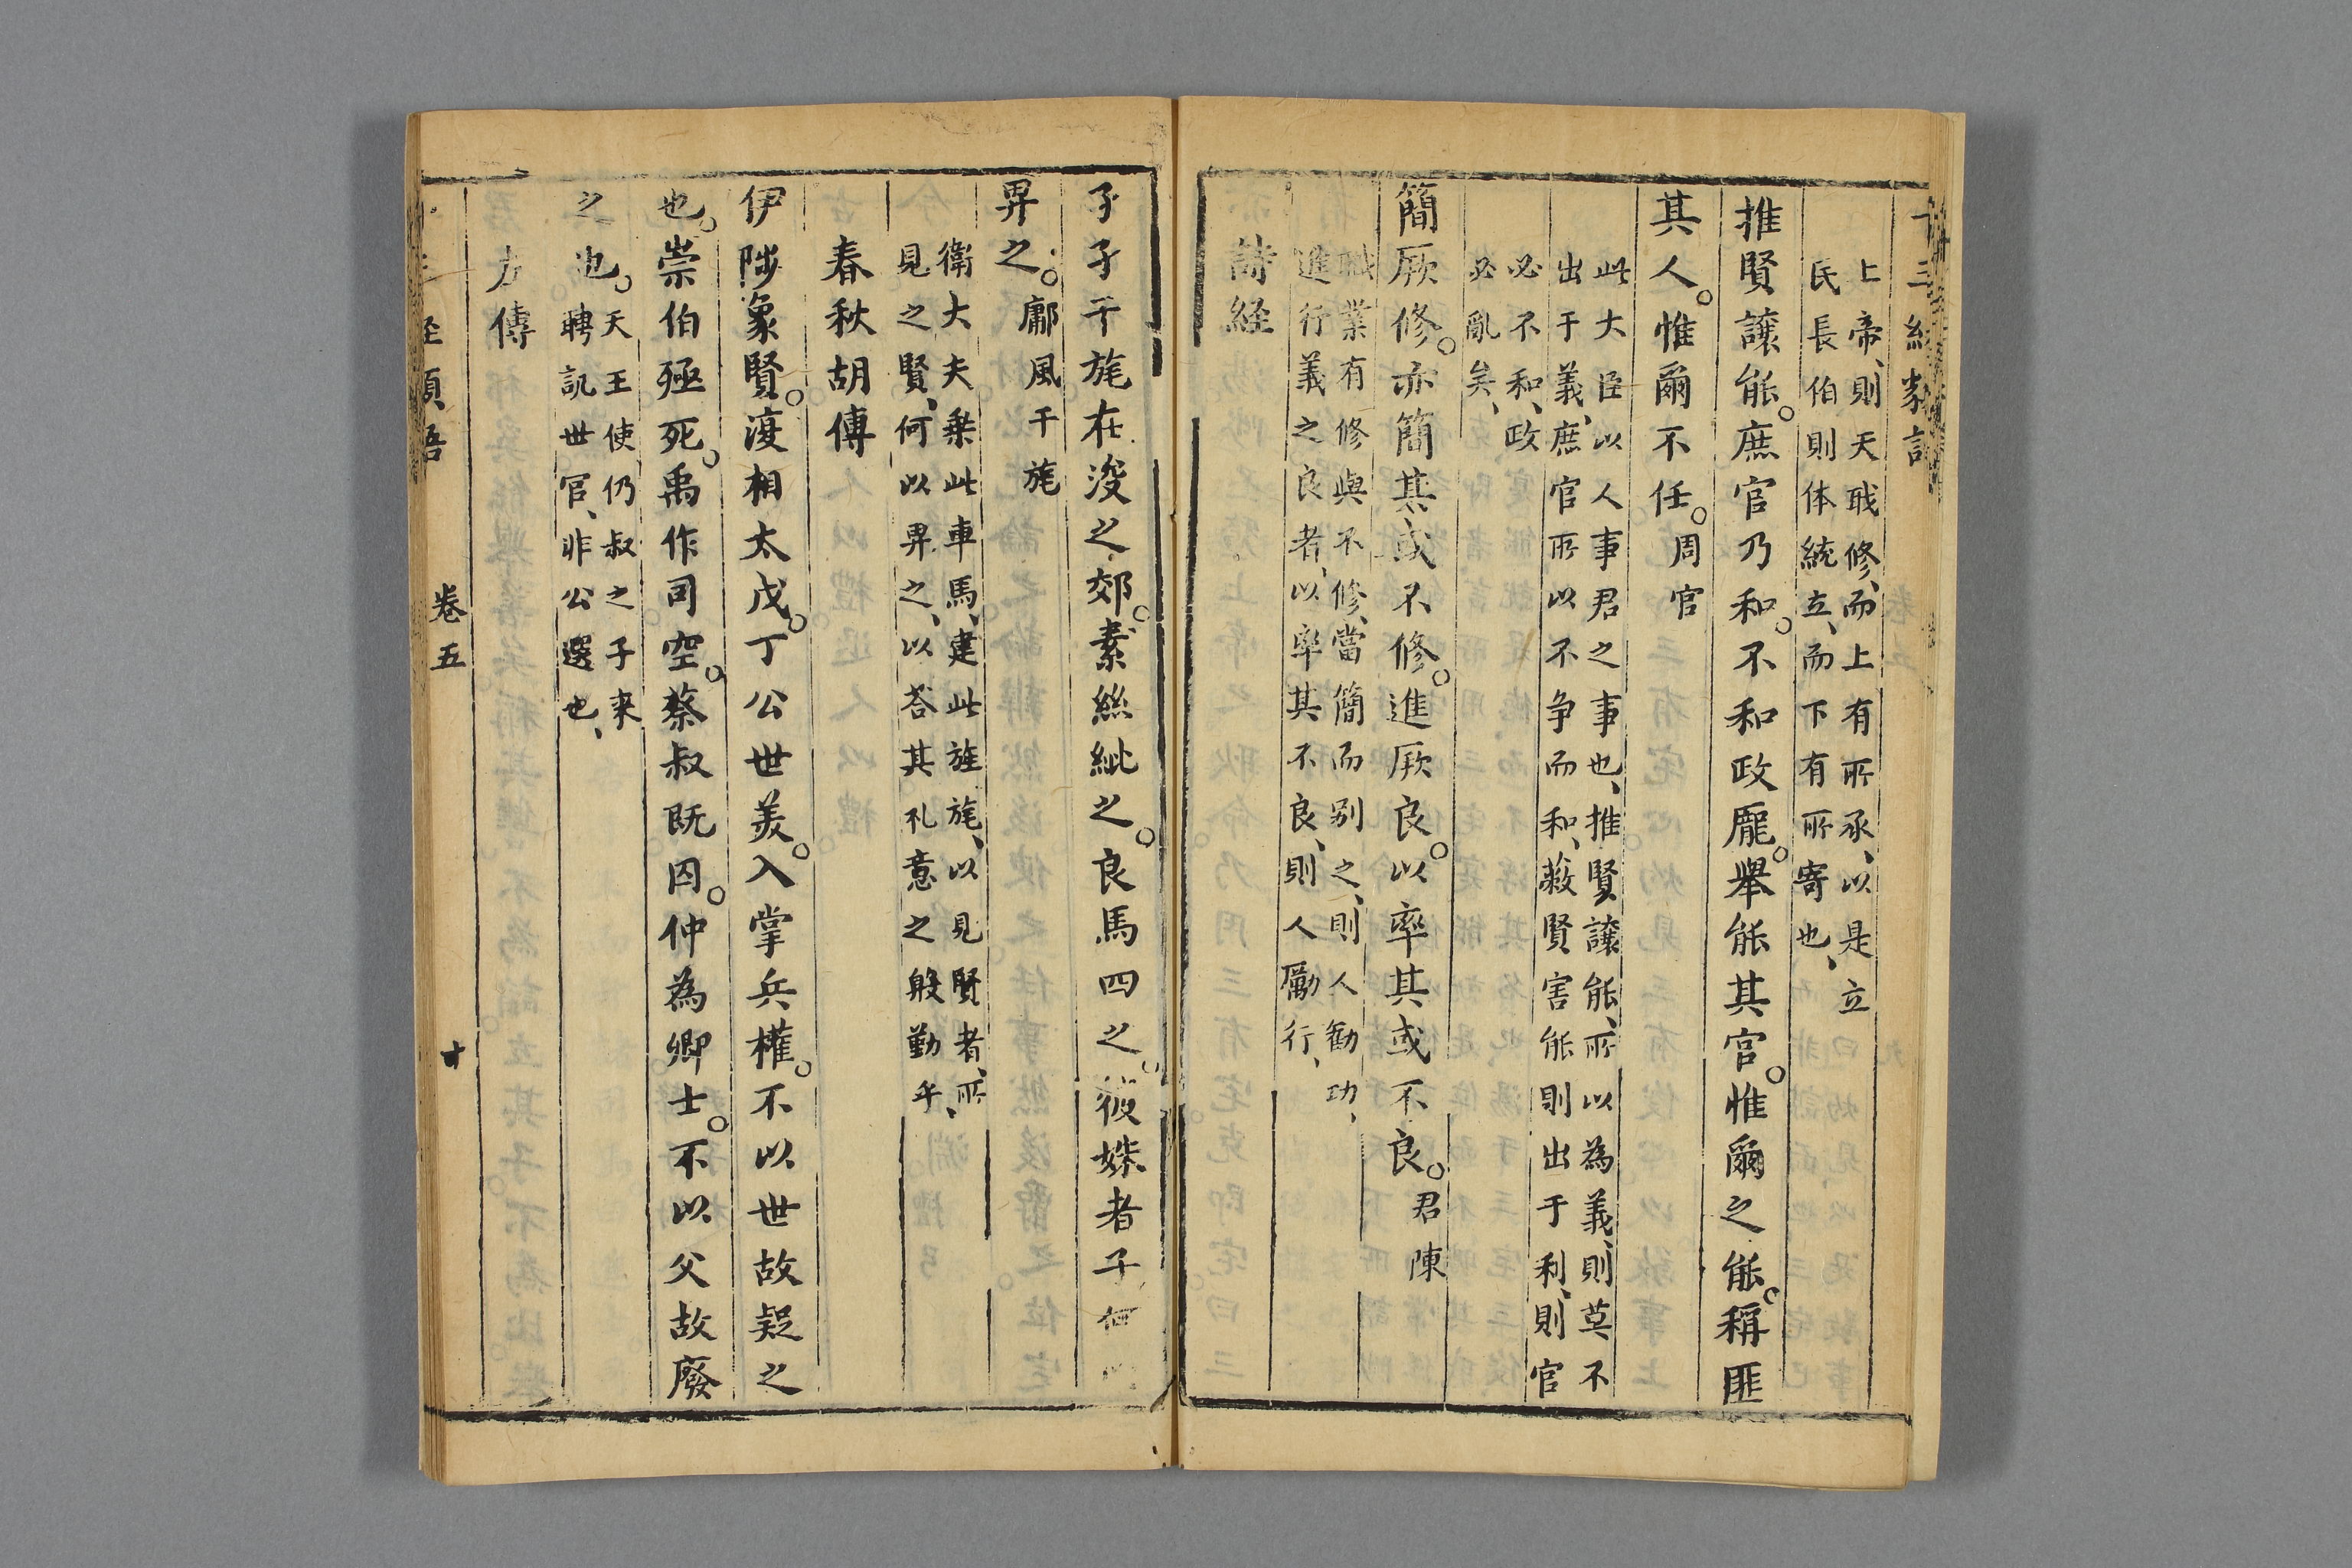 十三經類語
上帝、則天戢修、而上有所承、以是立
民長伯則体統立、而下有所寄也、
推賢讓能。庶官乃和。不和政厖。舉能其官。惟爾之能。稱匪
其人。惟爾不任。周官
此大臣以人事君之事也、推賢讓能、所以為義、則莫不
出于義、庶官所以不争而和、蔽賢害能則出于利、則官
必不和、政
必亂矣、
簡厥修。亦簡其或不修。進厥良。以率其或不良。君陳
職業有修與不修、當簡而别之、則人勸功、
進行義之良者、以率其不良、則人勵行、
詩経
孑孑干旄在浚之郊。素絲紕之。良馬四之。彼姝者子何以
畀之。鄘風干旄
衛大夫乗此車馬、建此旌旄、以見賢者、所
見之賢、何以畀之、以荅其礼意之殷勤乎、
春秋胡傳
伊陟象賢。復相太戊。丁公世美。入掌兵權。不以世故疑之
也。崇伯殛死。禹作司空。蔡叔既囚。仲為卿士。不以父故廢
之也。天王使仍叔之子来
聘訊世官、非公選也、
左傳
經類語 卷五 十